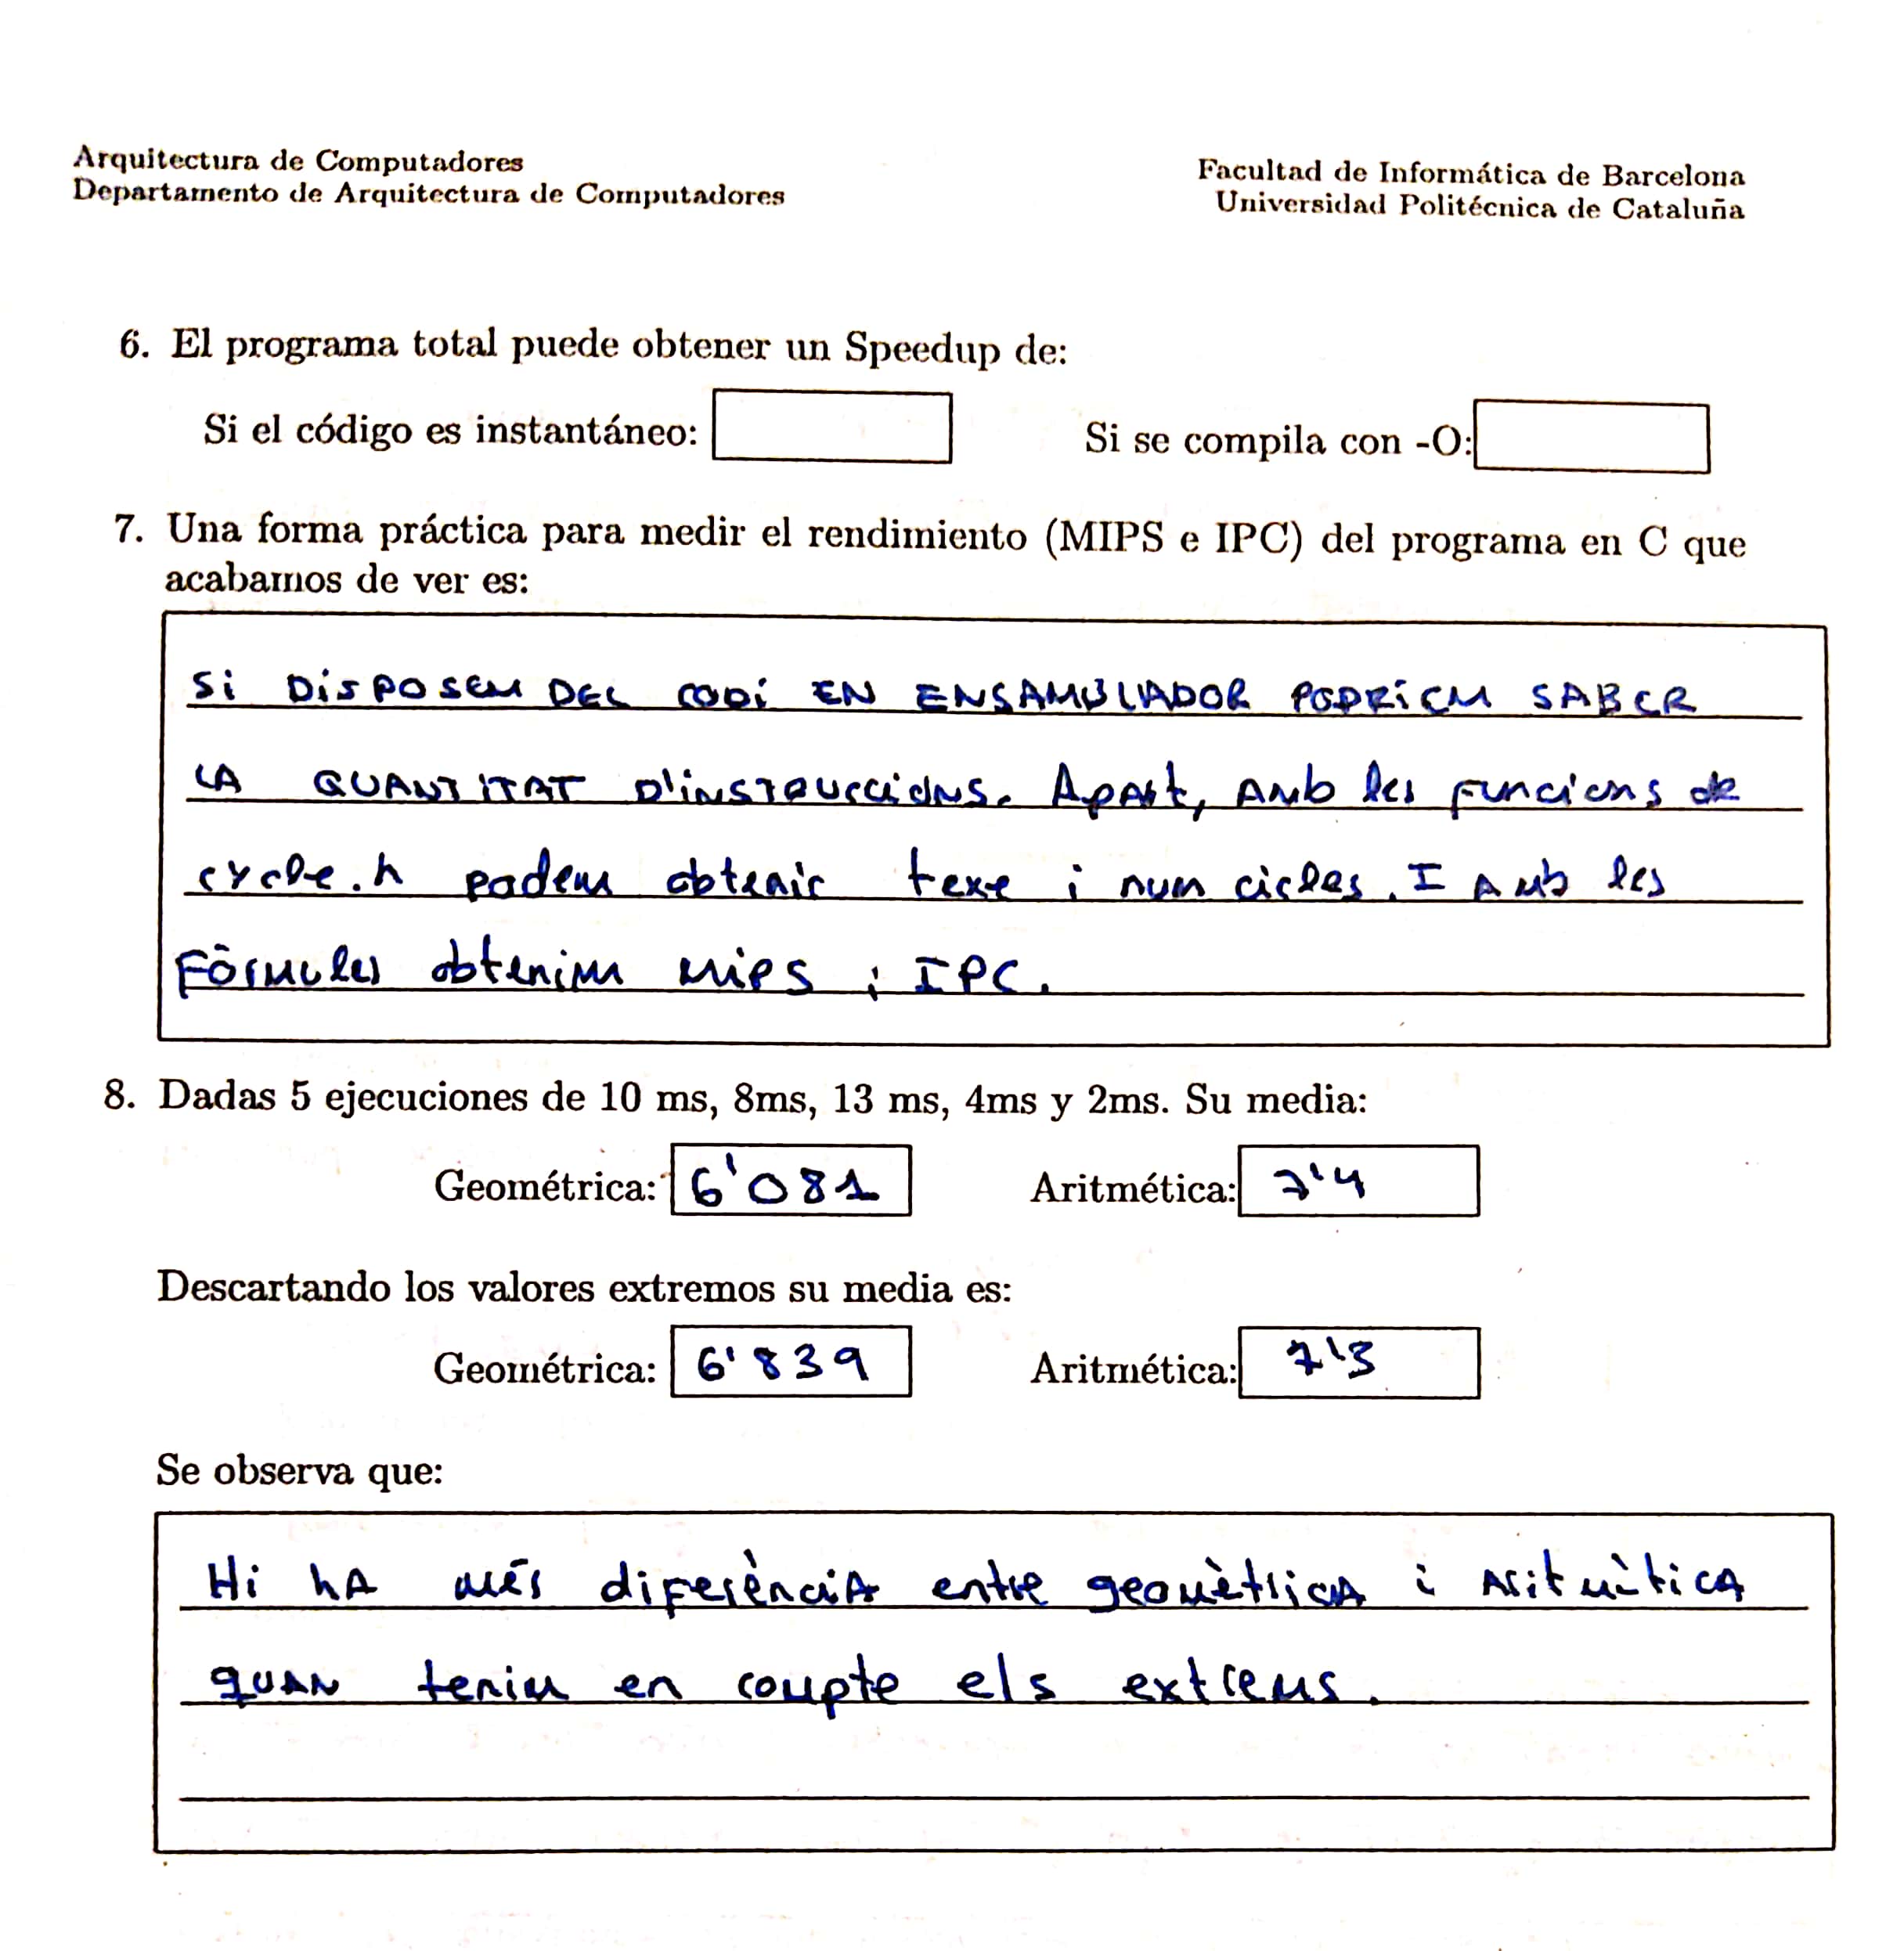 Arquitectura de Computadores
Departamento de Arquitectura de Computadores
Facultad de Informática de Barcelona
Universidad Politécnica de Cataluña
6. El programa total puede obtener un Speedup de:
Si el código es instantáneo: Si se compila con -O:
7. Una forma práctica para medir el rendimiento (MIPS e IPC) del programa en C que
acabamos de ver es:
Si DISPOSEM DEL CODI EN ENSAMBLADOR PODRÍEM SABER
LA QUANTITAT D'INSTRUCCIONS. Apart, AMb les funcions de
cycle.h podem obtenir texe i num cicles. I AMb les
Fòrmules obtenim MIPS i IPC.
8. Dadas 5 ejecuciones de 10 ms, 8ms, 13 ms, 4ms y 2ms. Su media:
Geométrica: 6'081 Aritmética: 7'4
Descartando los valores extremos su media es:
Geométrica: 6'839 Aritmética: 7'3
Se observa que:
Hi hA més diferènciA entre geomètricA i Aritmètica
quAN tenim en compte els extrems.